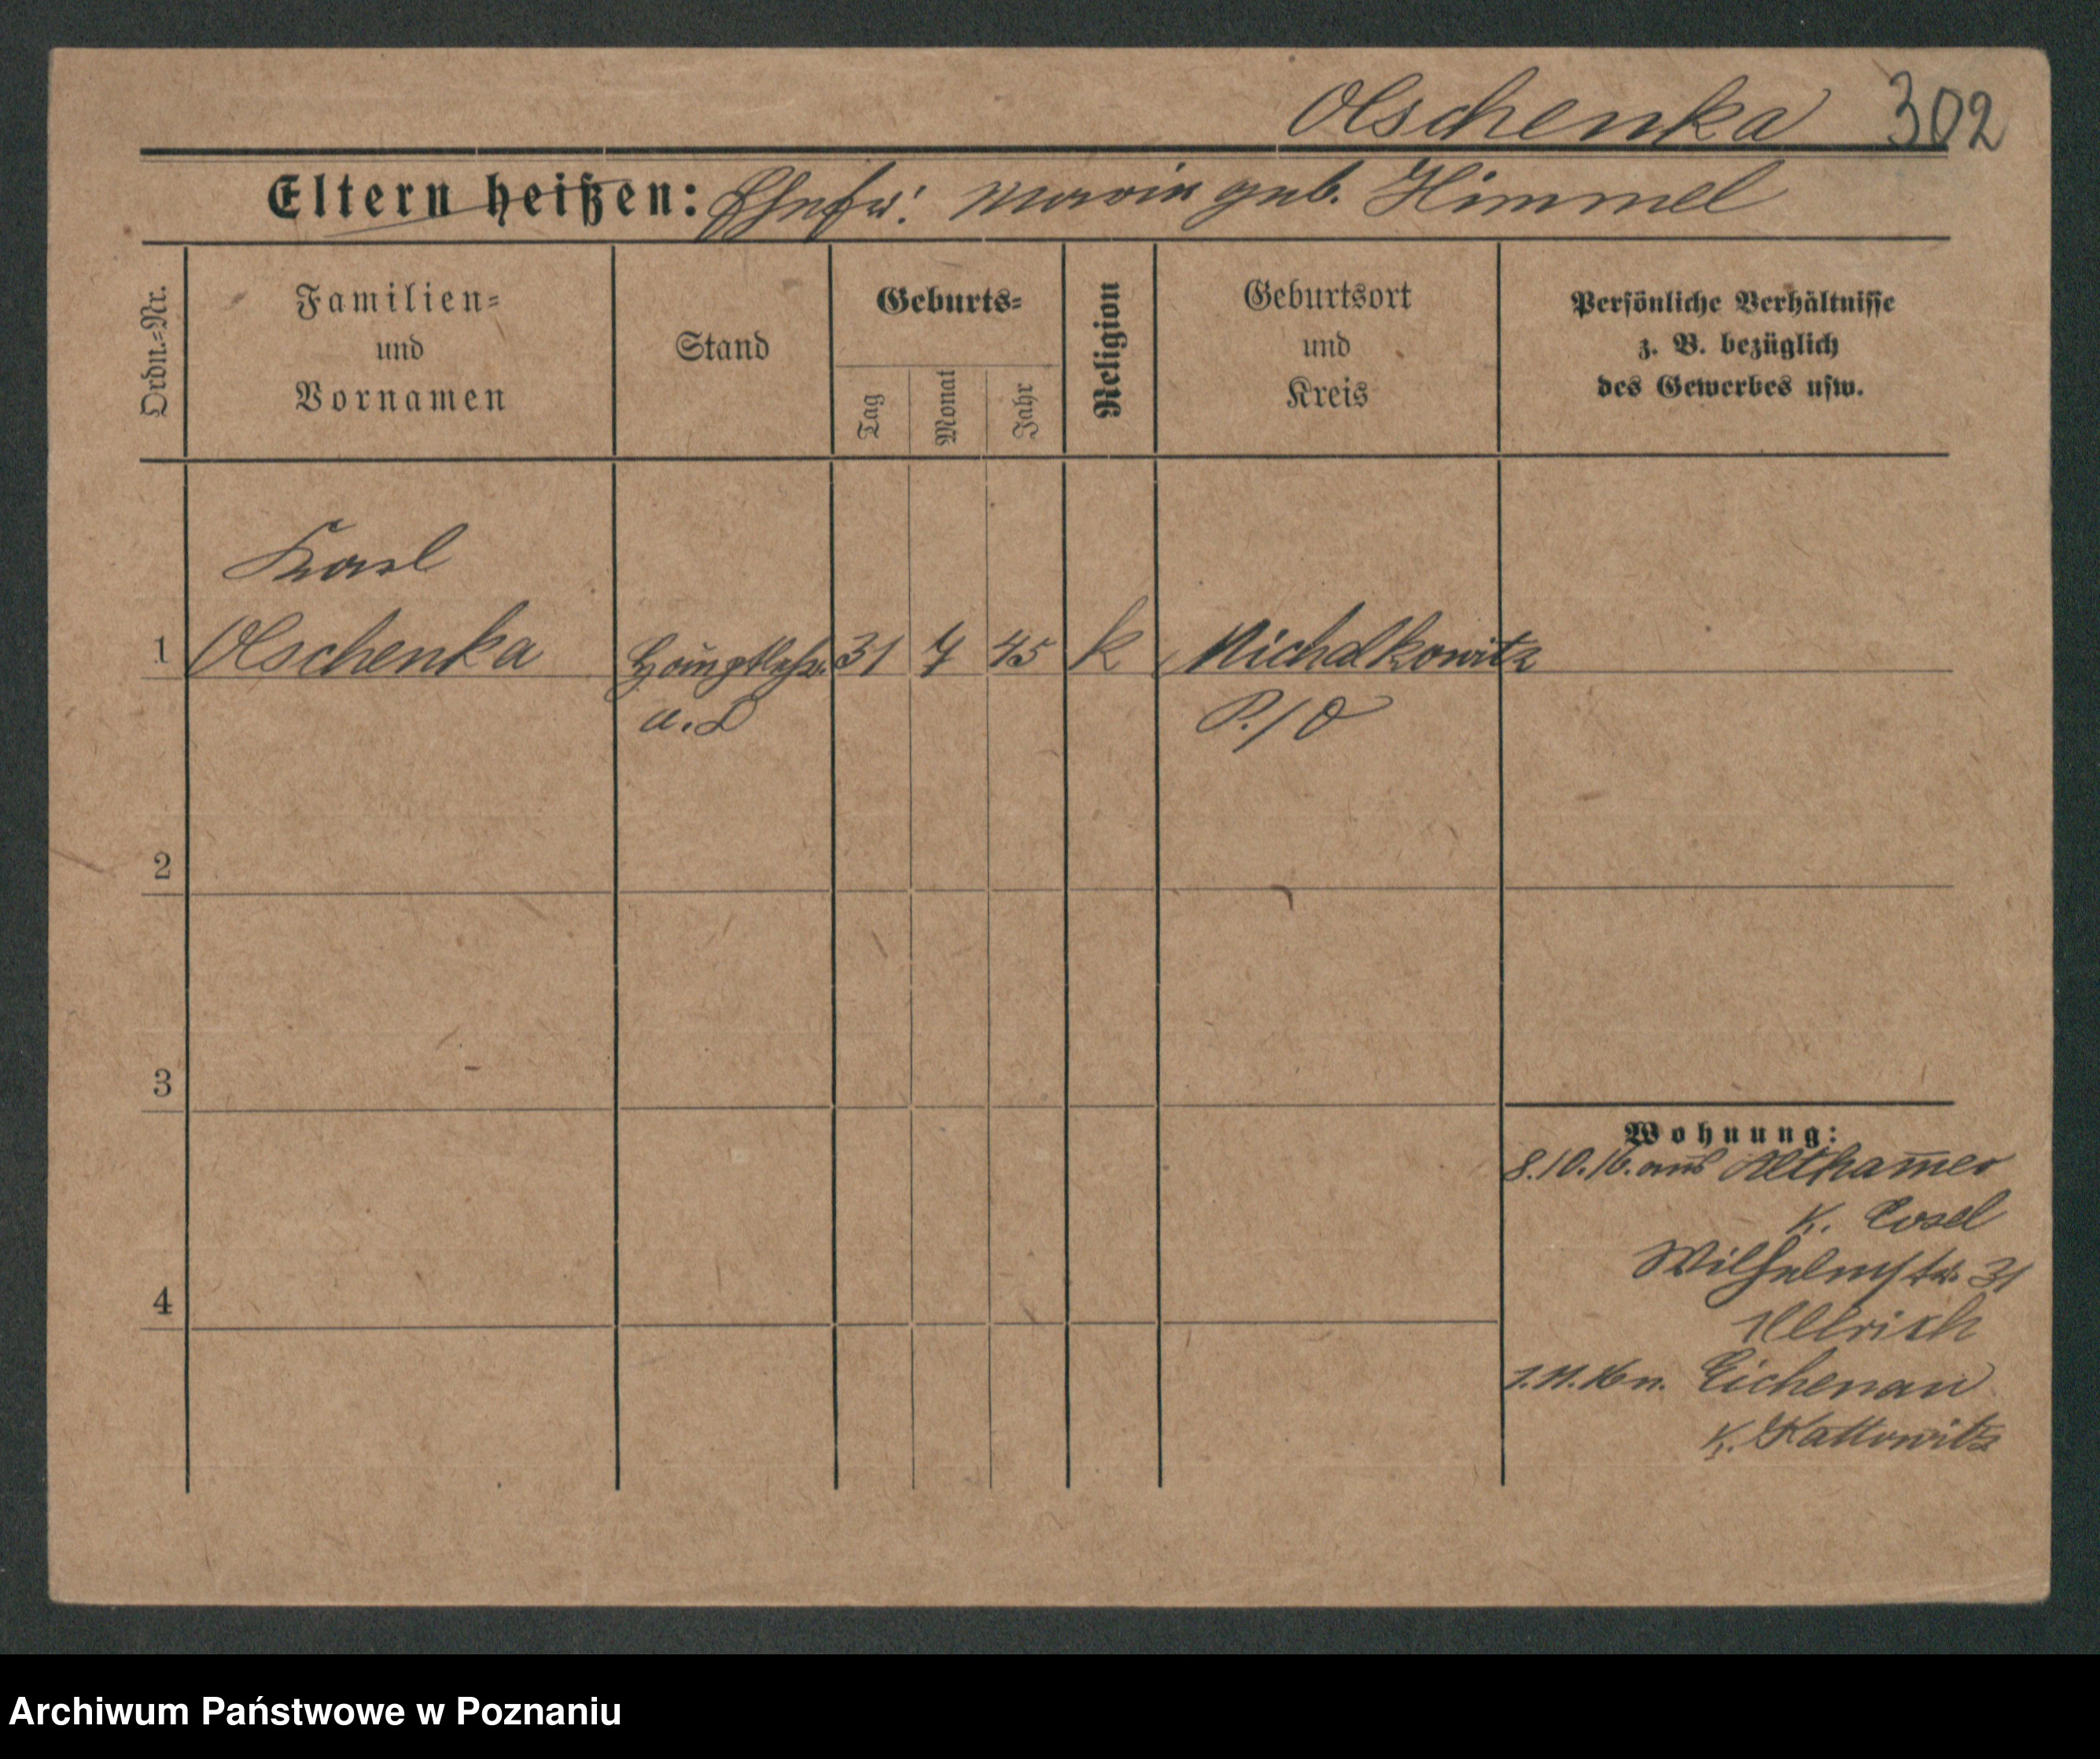 Olschenka 302
Eltern heißen: Ehefr: Marie geb. Himmel
Ordn.=Nr.
Familien=
und
Vornamen
Stand
Geburts=
Tag
Monat
Jahr
Religion
Geburtsort
und
Kreis
Persönliche Verhältnisse
z. B. bezüglich
des Gewerbes usw.
Karl
1 Olschenka Hauptlehr. 31 7 45 k Michalkowitz
a. D P./O
2
3
4
Wohnung:
8.10.16. aus Altham̄er
K. Cosel
Wilhelmstr. 31
Ullrich
1.11.16 n. Eichenau
K. Kattowitz
Archiwum Państwowe w Poznaniu